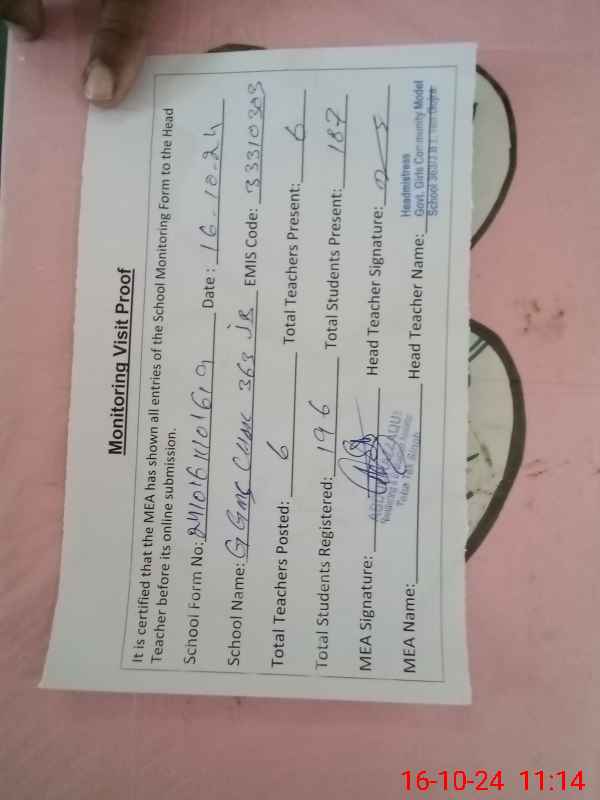 Monitoring Visit Proof
It is certified that the MEA has shown all entries of the School Monitoring Form to the Head
Teacher before its online submission.
School Form No: Date: 16-10-24
School Name: 363 JB EMIS Code: 33310303
Total Teachers Posted: 6 Total Teachers Present: 6
Total Students Registered: 196 Total Students Present: 187
MEA Signature: Head Teacher Signature:
MEA Name: Head Teacher Name:
Headmistress
Govt. Girls Community Model
School 363/J.B
16-10-24 11:14